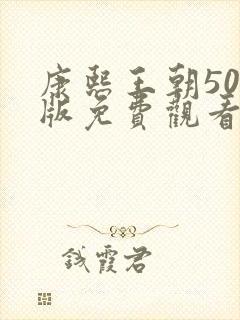 康熙王朝50
版免費觀看
钱霞君